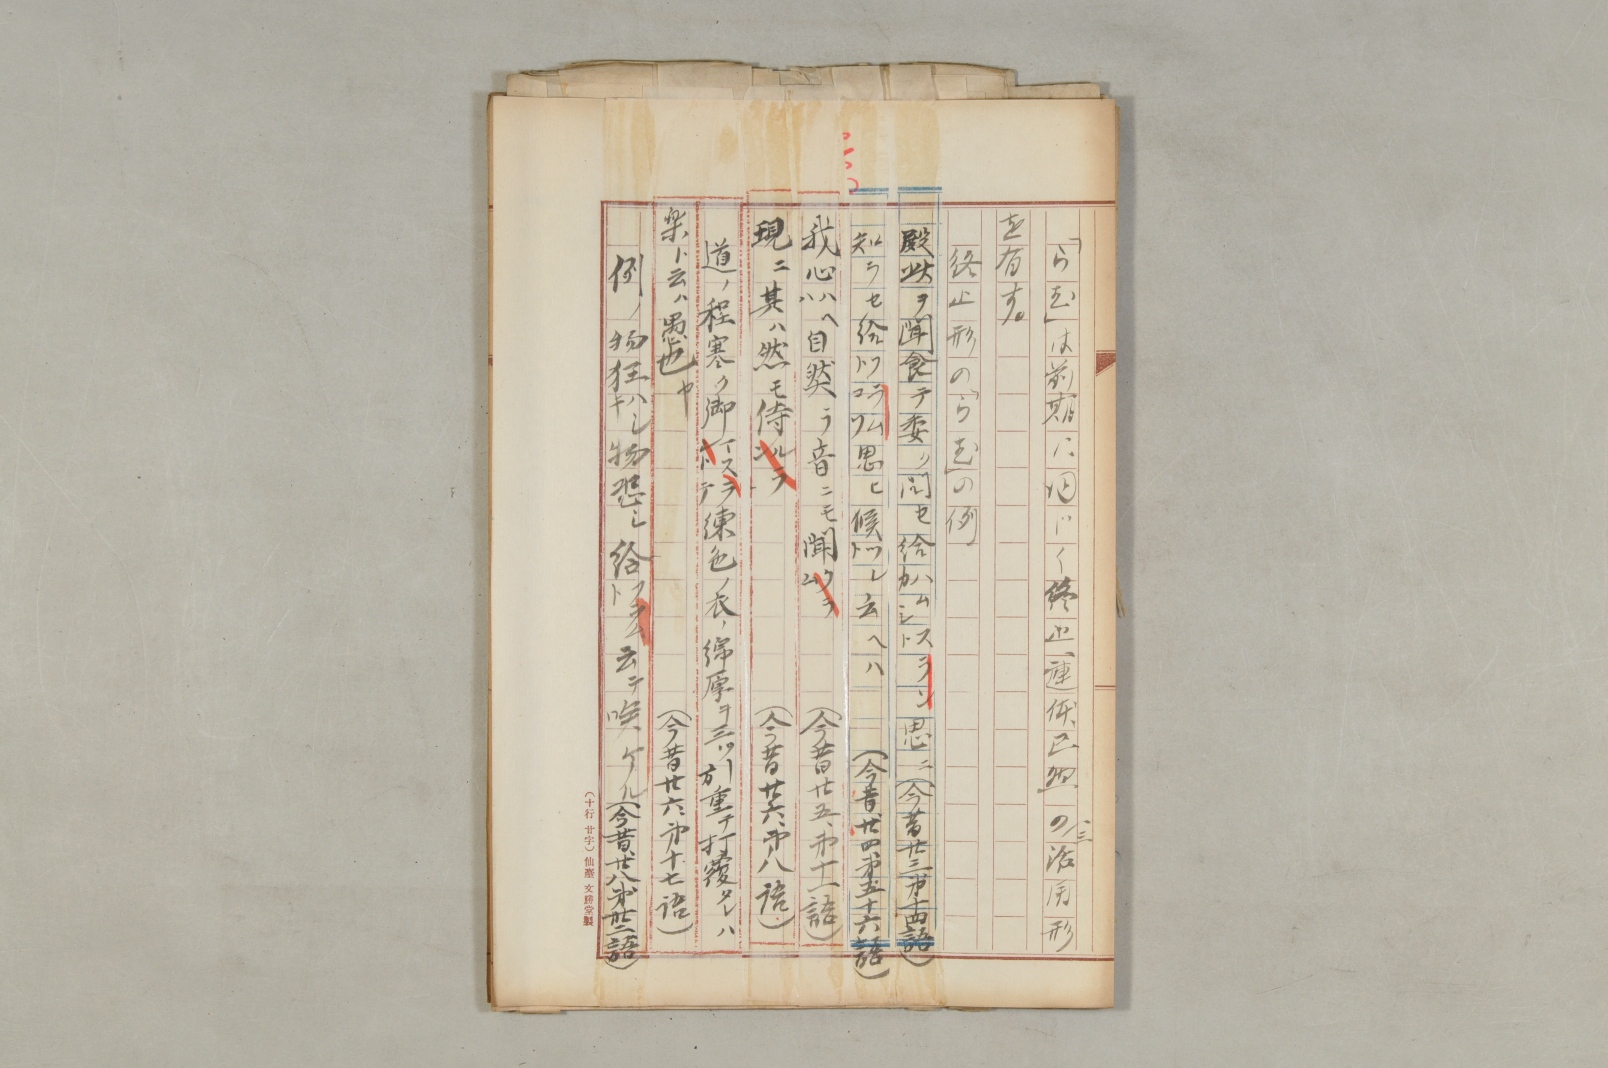 「らむ」は前期に同じく終止、連体、已然の三活用形
を有す。
終止形の「らむ」の例
殿此ヲ聞食テ委ク問セ給ハムカシトスラン思ニ(今昔廿三第十四語)
知ラセ給フラムトコソ思ヒ候ツレト云ヘハ(今昔廿四第五十六語)
我心ハヘハ自然ラ音ニモ聞クラム(今昔廿五、第十一語)
現ニ其ハ然モ侍ルラン(今昔廿六、第八語)
道ノ程寒ク御イスラトテ練色ノ衣ノ綿厚ヲ三ツ引重テ打覆タレハ
楽ト云ハ愚也ヤ(今昔廿六、第十七語)
例ノ物狂ハシキ物恐シ給フラムト云テ咲ケル(今昔廿八第廿二語)
(十行 廿字) 仙臺 文勝堂製